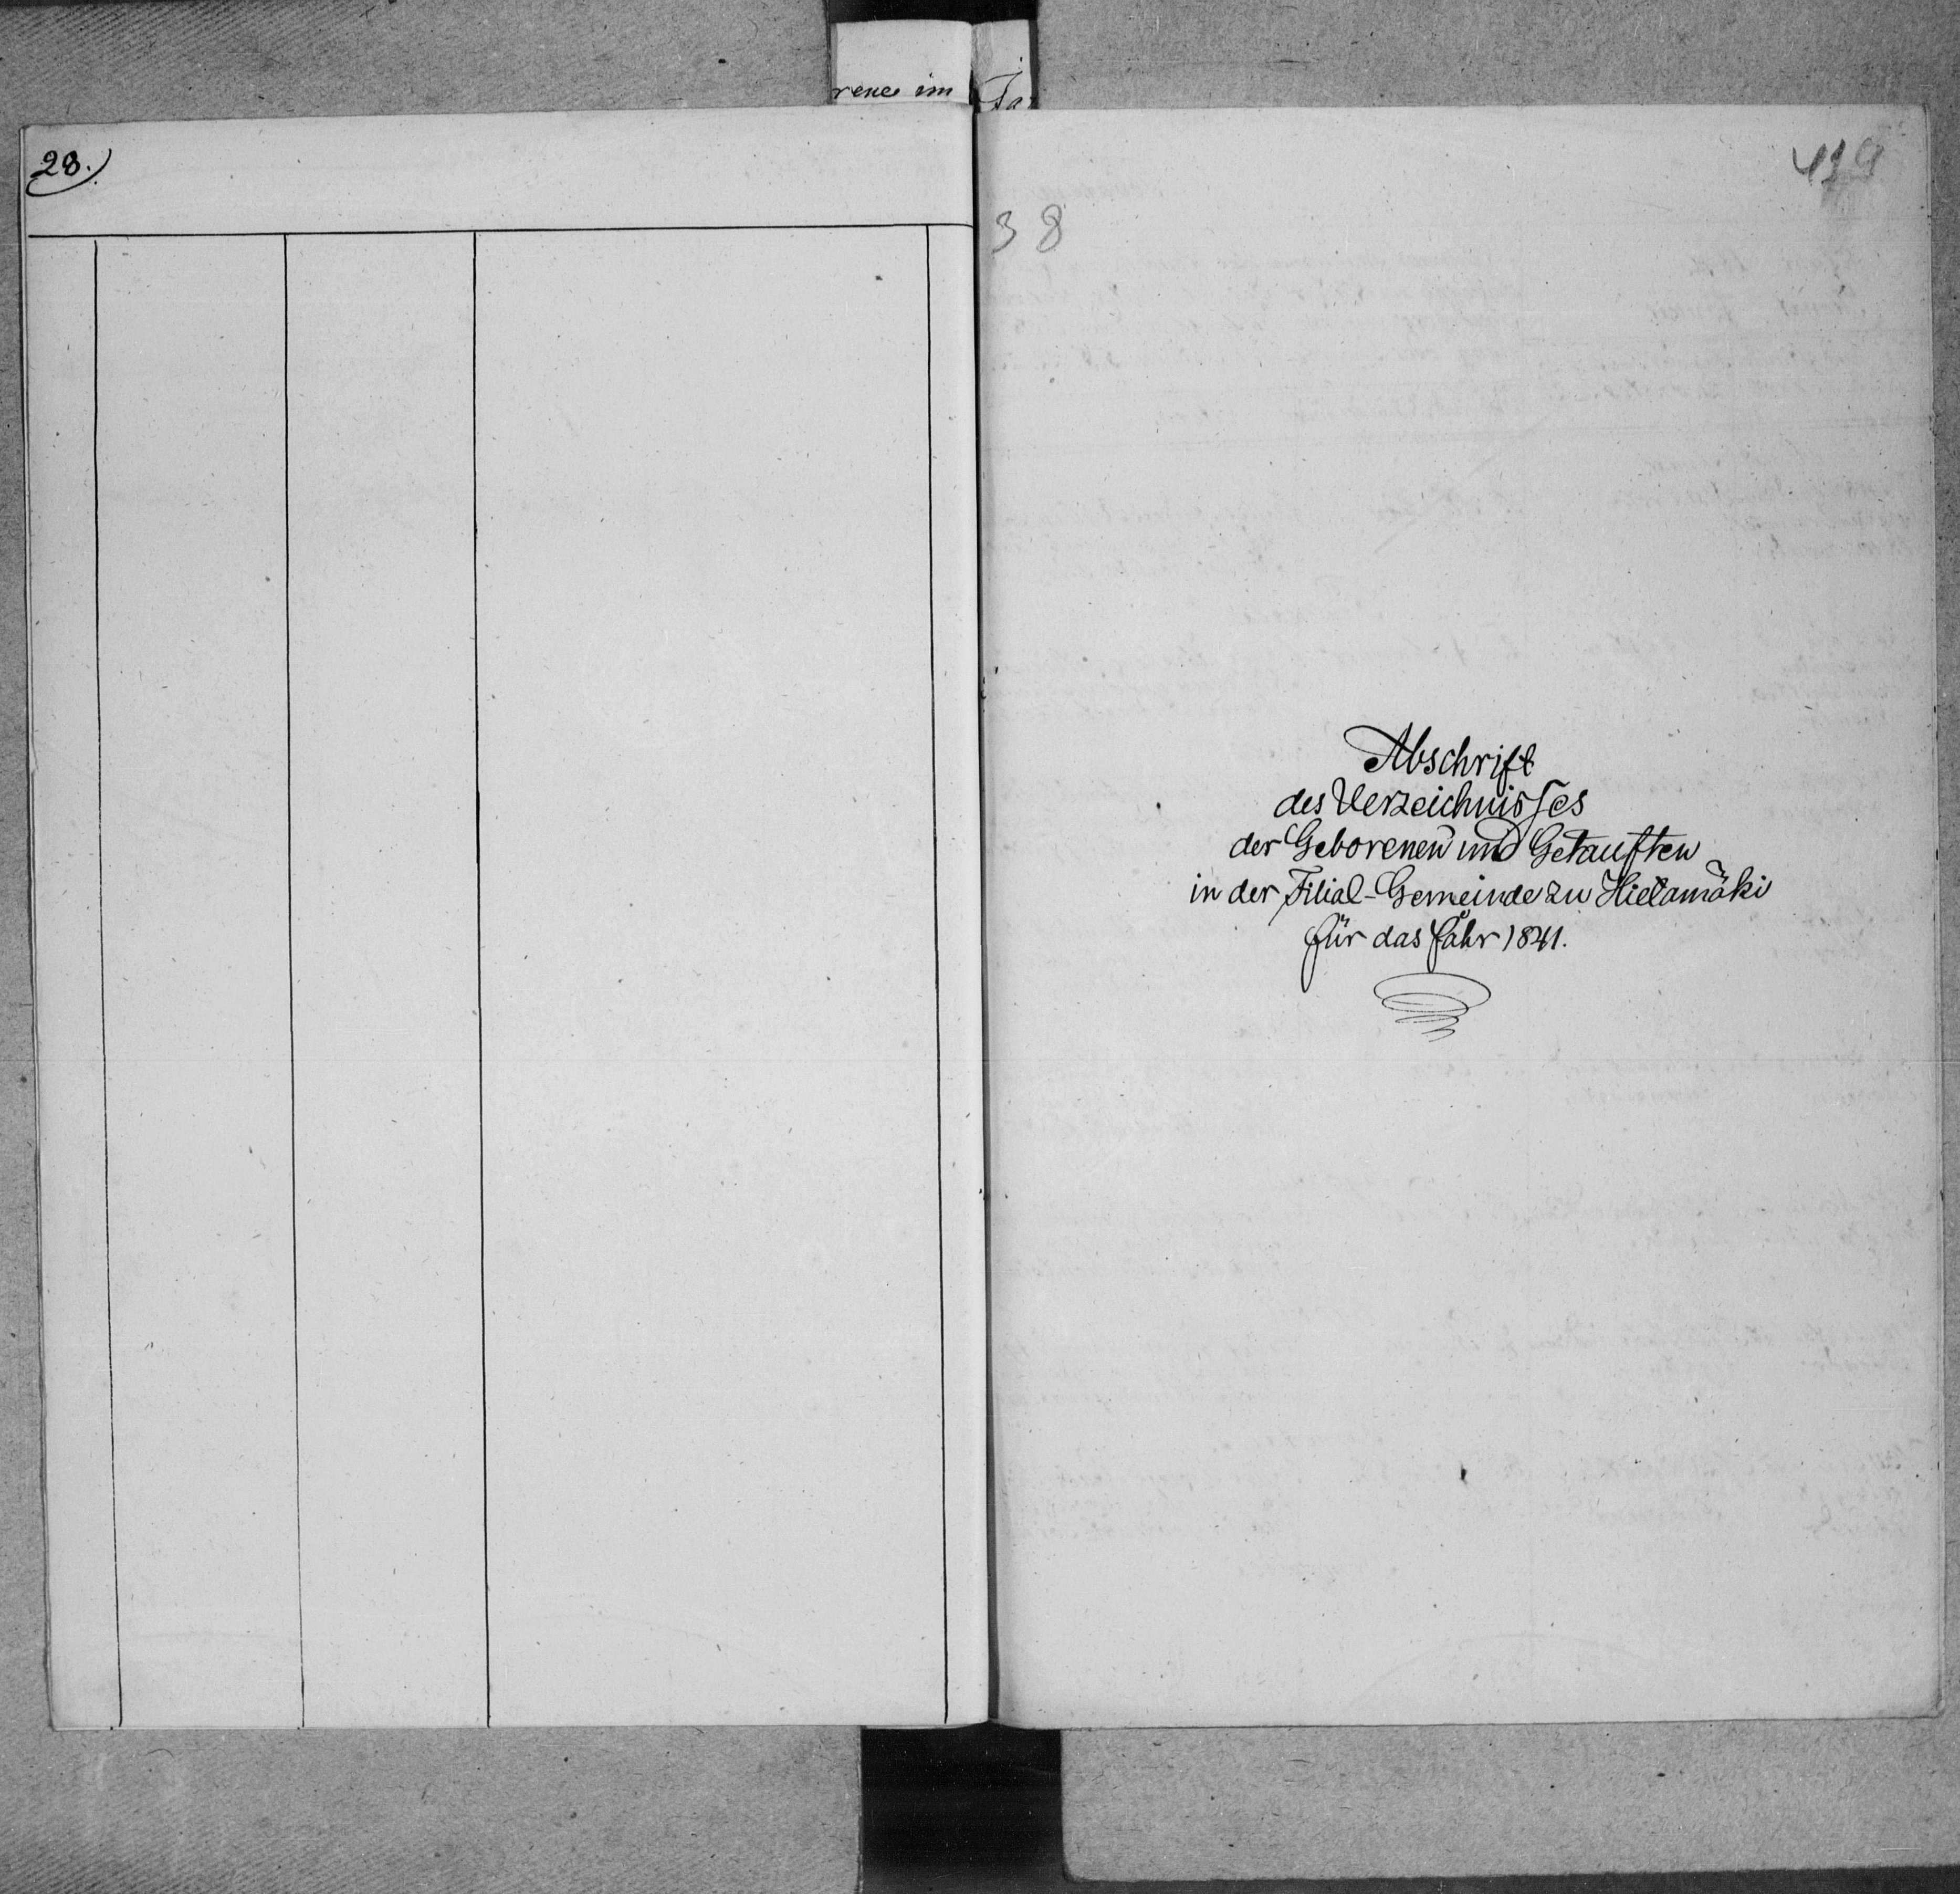 rene im
Ja
28.
38
Abschrift
des Verzeichnisses
der Geborenen und Getauften
in der Filial-Gemeinde zu Hietamäki
für das Jahr 1841.